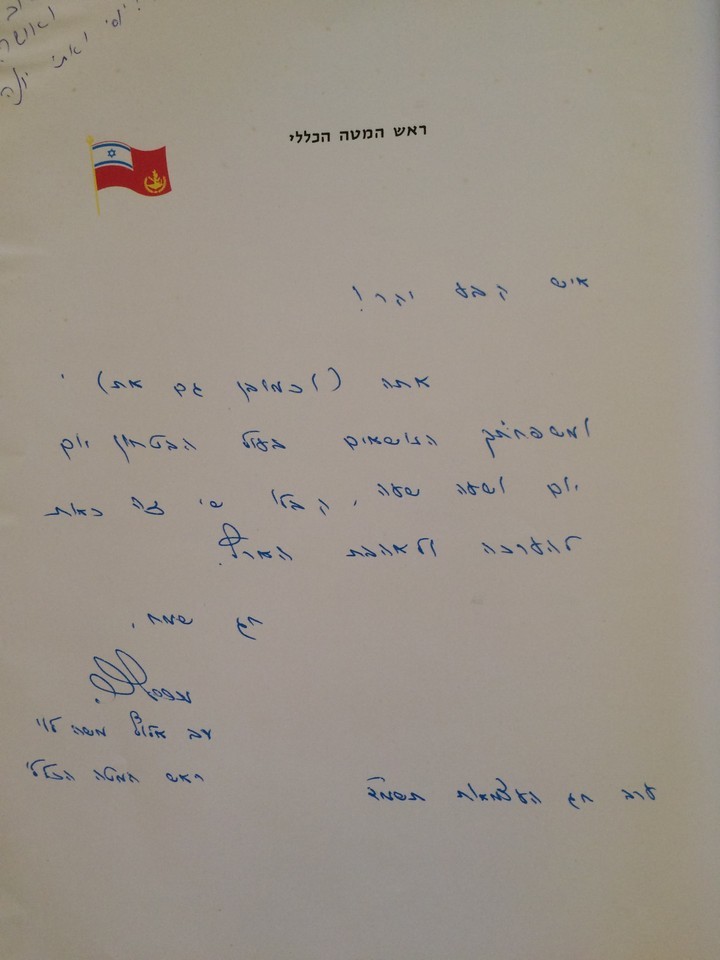 ואשר
יוסי ואתי יולה
ראש המטה הכללי
איש הקבע יקר!
אתה (וכמובן גם את)
ומשפחתך הנושאים בעול הבטחון יום
יום ושעה שעה, קבלו שי זה כאות
להערכה ולאהבת הארץ.
חג שמח,
רב אלוף משה לוי
ראש המטה הכללי
ערב חג העצמאות תשמ"ד